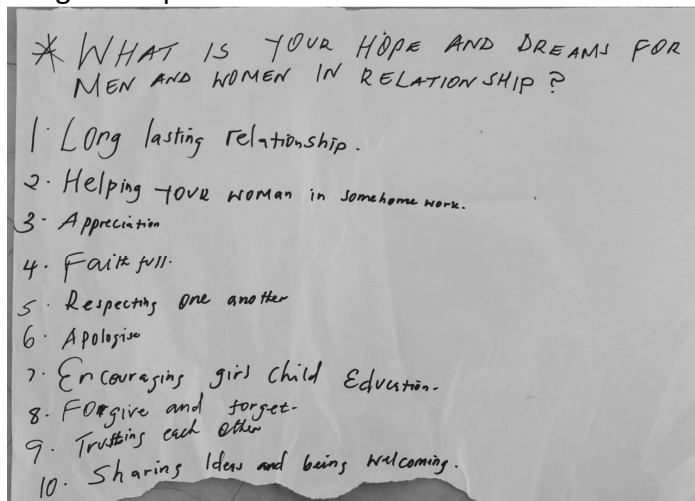 * WHAT IS YOUR HOPE AND DREAMS FOR
MEN AND WOMEN IN RELATIONSHIP?
1. Long lasting relationship.
2. Helping YOUR woman in somehome work.
3. Appreciation
4. Faith full.
5. Respecting one another
6. Apologise
7. Encouraging girl child Education.
8. Forgive and forget.
9. Trusting each other
10. Sharing Ideas and being welcoming.